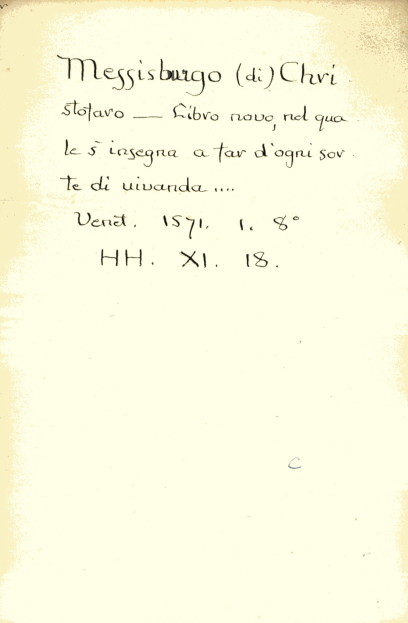 Messisburgo (di) Chri
stofaro — Libro novo, nel qua
le s' insegna a far d'ogni sor
te di uiuanda ....
Venet. 1571. 1. 8°
HH. XI. 18.
C